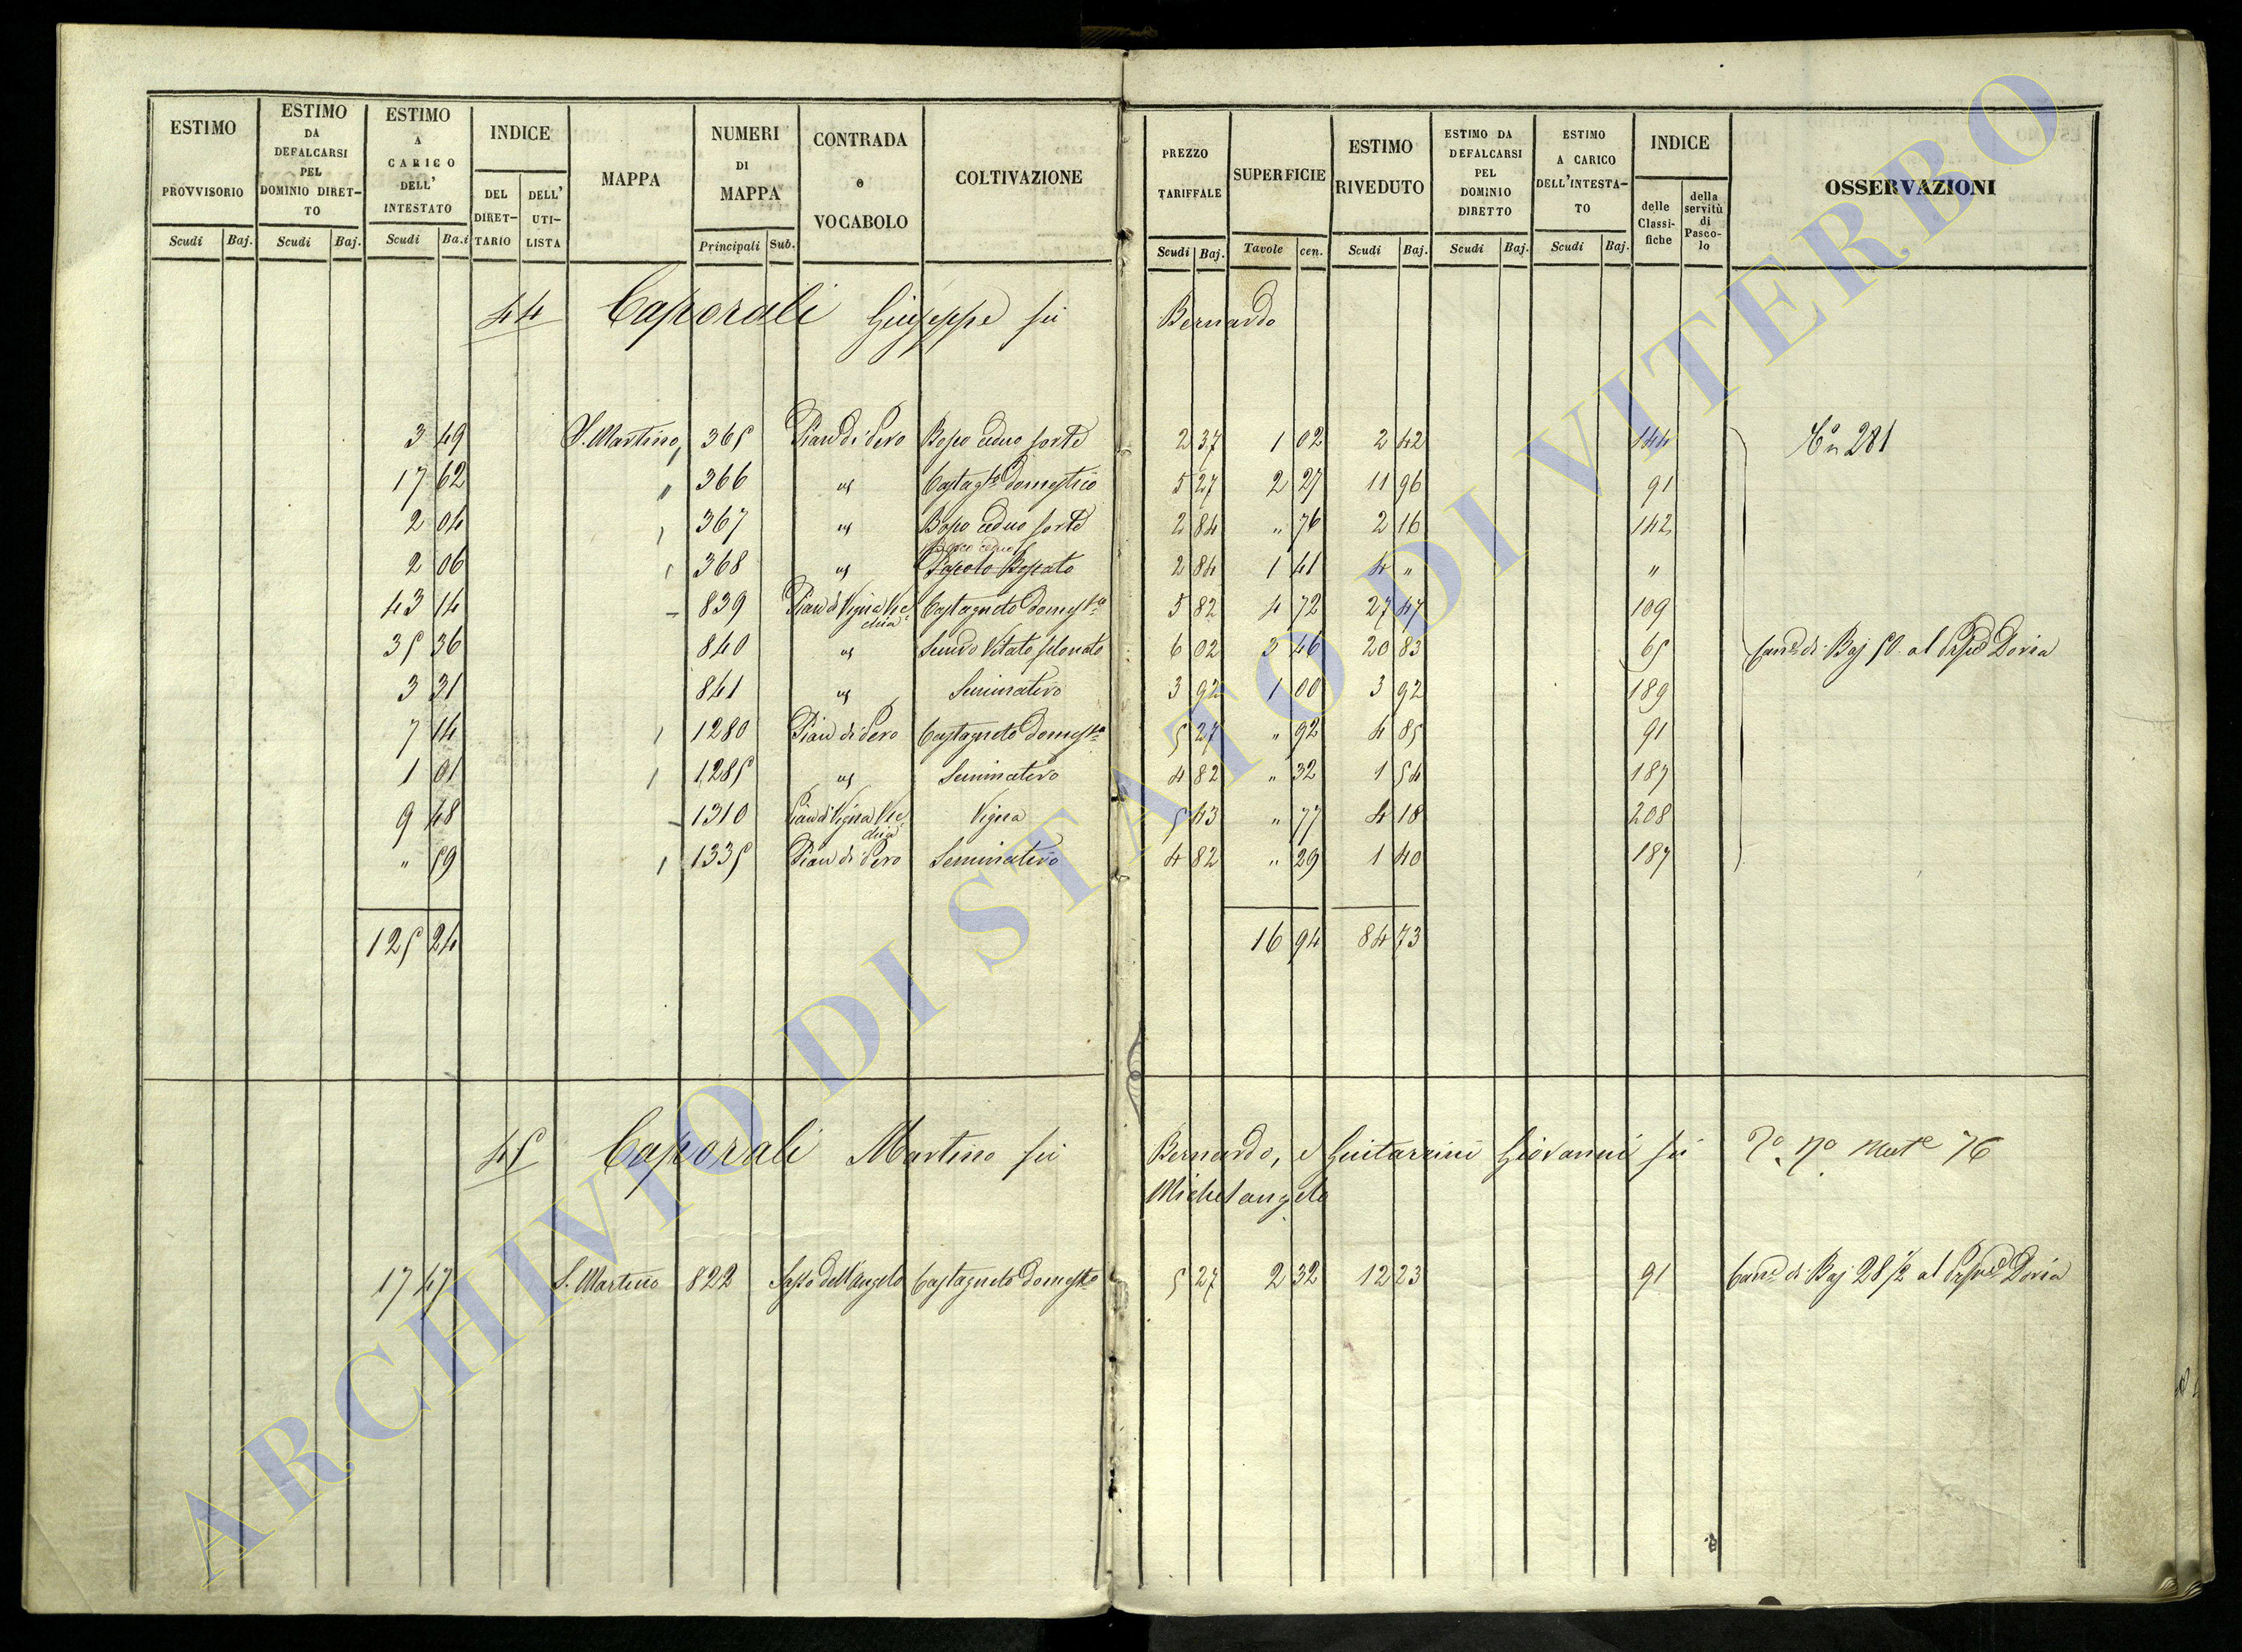 ESTIMO PROVVISORIO Scudi Baj.
ESTIMO DA DEFALCARSI PEL DOMINIO DIRETTO Scudi Baj.
ESTIMO A CARICO DELL' INTESTATO Scudi Ba.i
INDICE DEL DIRETTARIO DELL' UTILISTA
MAPPA
NUMERI DI MAPPA Principali Sub.
CONTRADA o VOCABOLO
COLTIVAZIONE
PREZZO TARIFFALE Scudi Baj.
SUPERFICIE Tavole cen.
ESTIMO RIVEDUTO Scudi Baj.
ESTIMO DA DEFALCARSI PEL DOMINIO DIRETTO Scudi Baj.
ESTIMO A CARICO DELL'INTESTATO Scudi Baj.
INDICE delle Classifiche della servitù di Pascolo
OSSERVAZIONI
44 Caporali Giuseppe fu Bernardo
3 49 S. Martino 365 Pian di Pero Bosco ceduo forte 2 37 1 02 2 42 144 281
17 62 366 Castagto domestico 5 27 2 27 11 96 91
2 04 367 Bosco ceduo forte 2 84 " 76 2 16 142
Bosco ceduo
2 06 368 Pascolo Boscato 2 84 1 41 4 " "
43 14 839 Pian di Vigna Vecchia Castagneto domesto 5 82 4 72 27 47 109
35 36 840 Vitato 6 02 3 46 20 83 65 di Baj 50 al Doria
3 31 841 Seminativo 3 92 1 00 3 92 189
7 14 1280 Pian di Pero Castagneto domesto 5 27 " 92 4 85 91
1 01 1285 Seminativo 4 82 " 32 1 54 187
9 48 1310 Pian di Vigna Vecchia Vigna 5 43 " 77 4 18 208
" 59 1335 Pian di Pero Seminativo 4 82 " 29 1 40 187
125 24 16 94 84 73
45 Caporali Martino fu Bernardo, e Guitarrini Giovanni fu 76
Michelangelo
17 47 S. Martino 822 Sasso dell'Angelo Castagneto domesto 5 27 2 32 12 23 91 di Baj 28 1/2 al Doria
ARCHIVIO DI STATO DI VITERBO